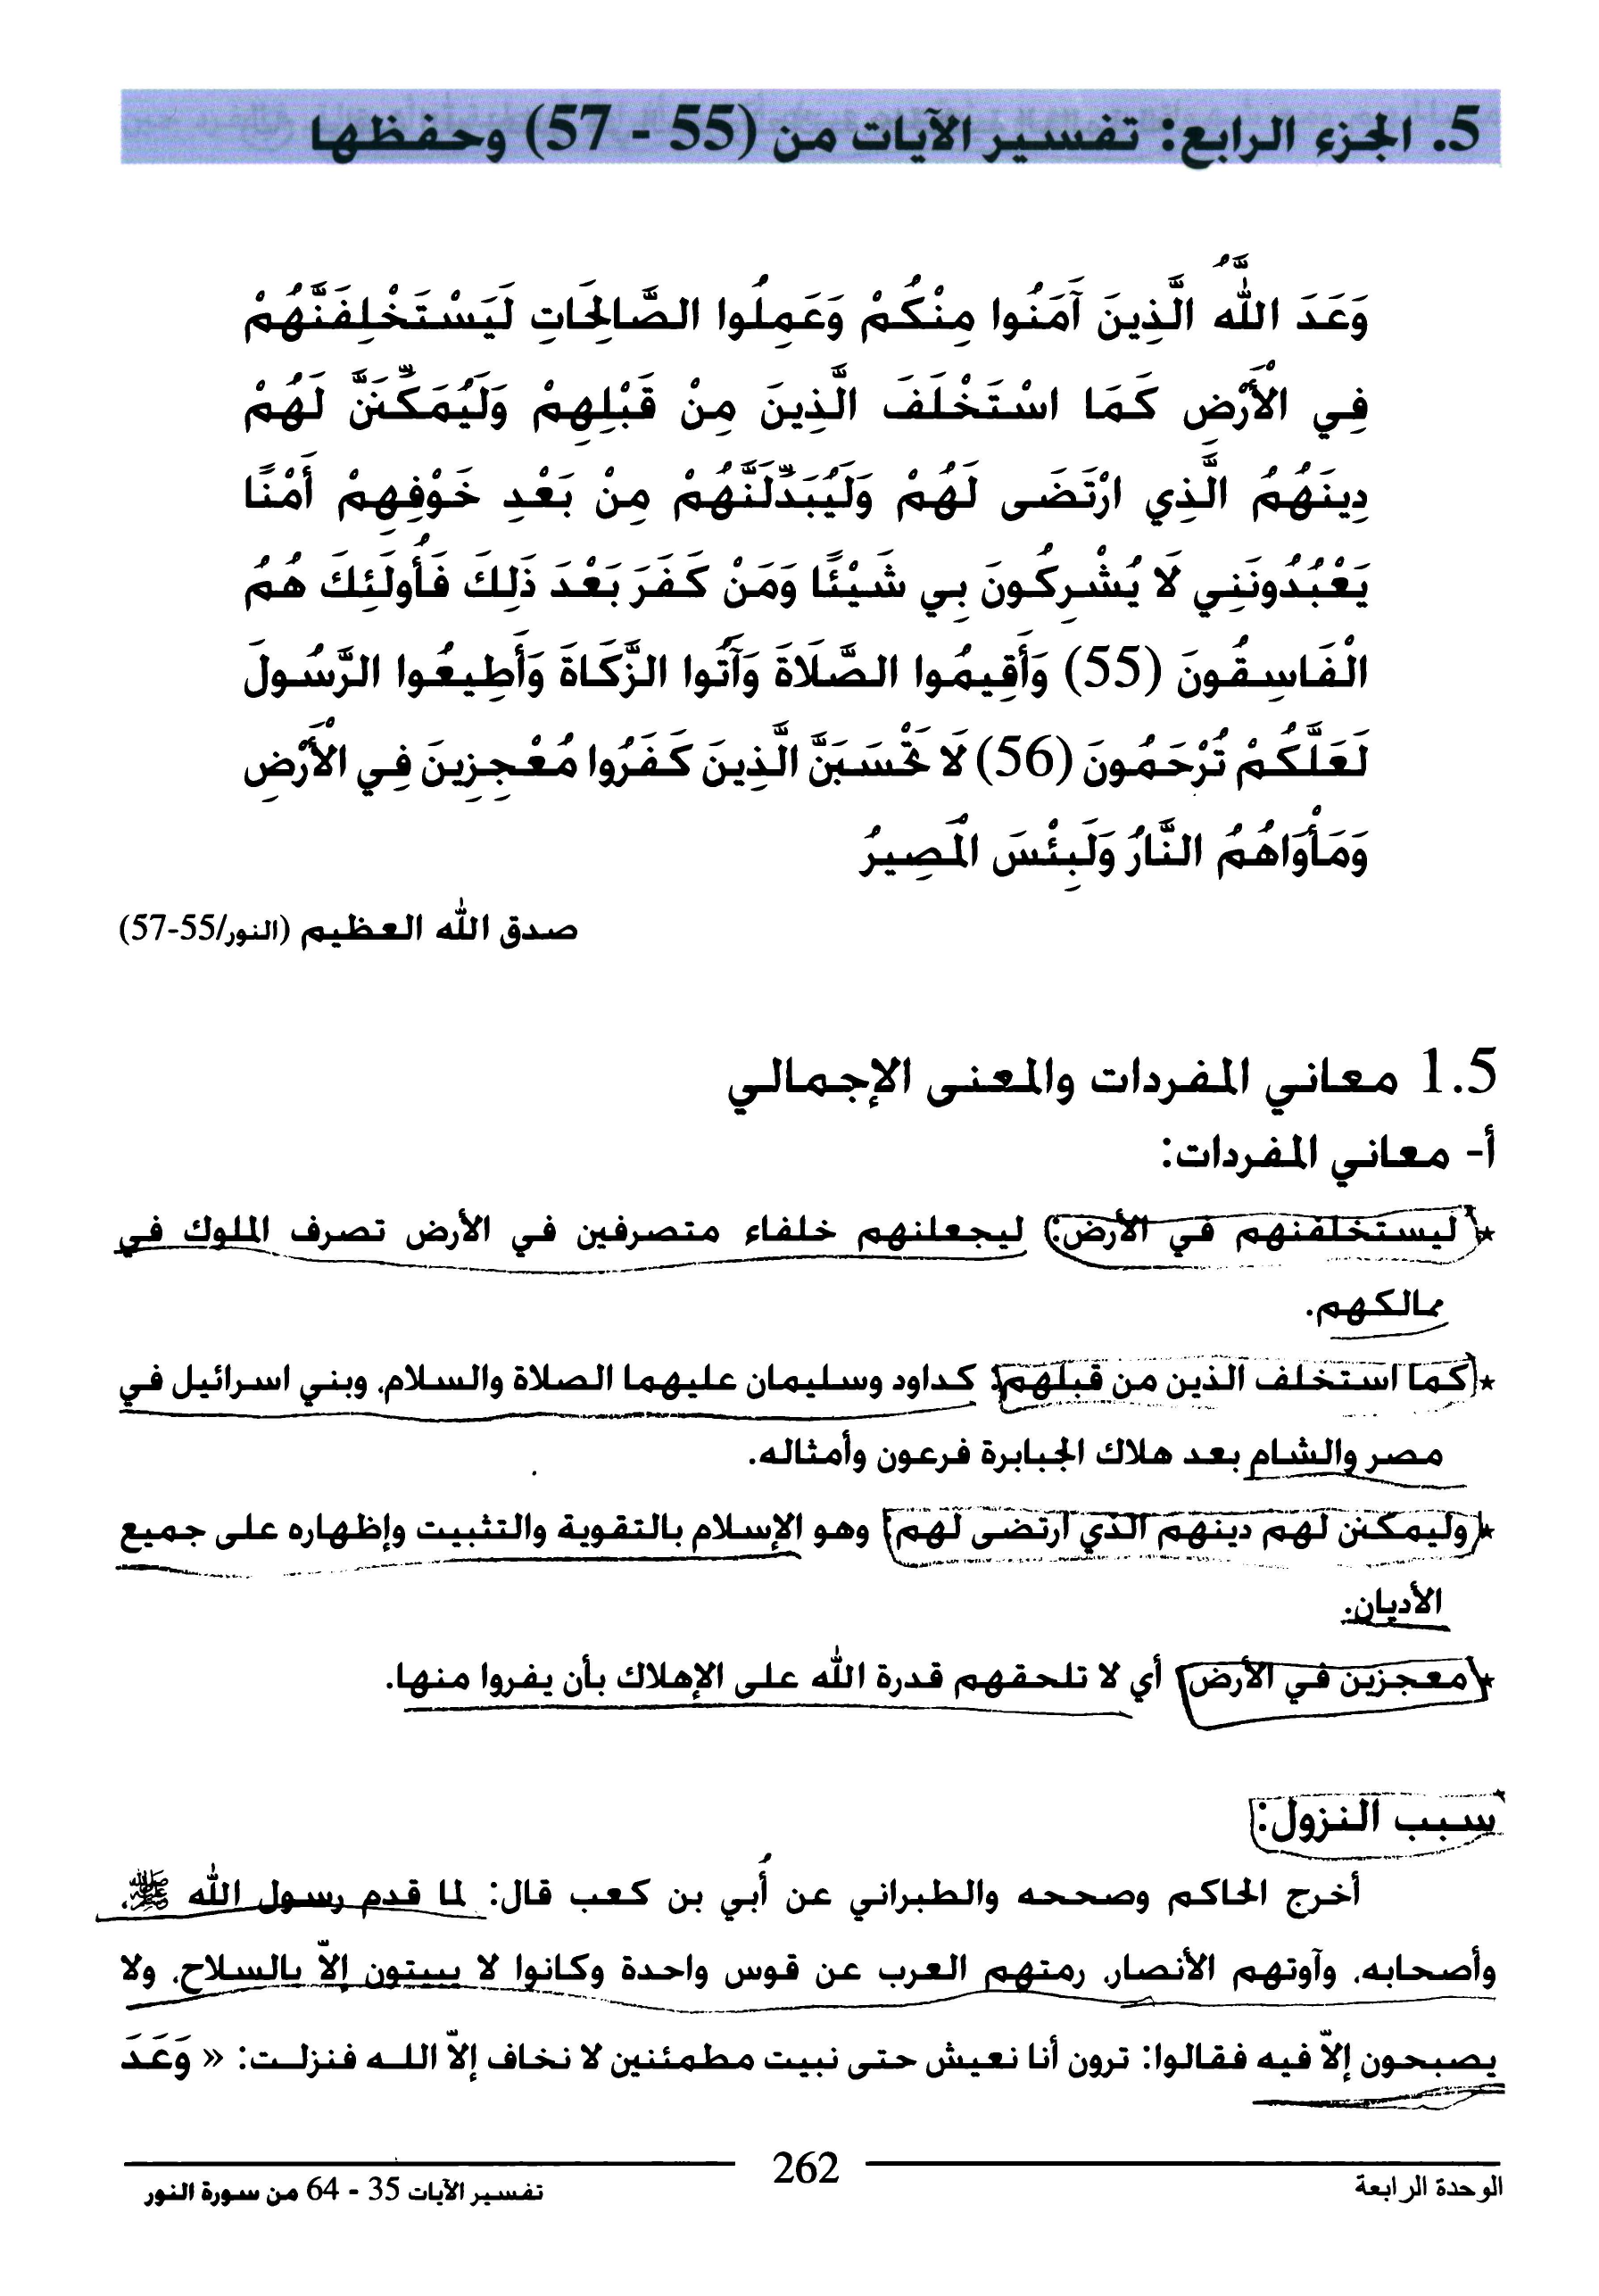 5. الجزء الرابع: تفسير الآيات من (55 - 57) وحفظها
وَعَدَ اللَّهُ الَّذِينَ آمَنُوا مِنْكُمْ وَعَمِلُوا الصَّالِحَاتِ لَيَسْتَخْلِفَنَّهُمْ
فِي الْأَرْضِ كَمَا اسْتَخْلَفَ الَّذِينَ مِنْ قَبْلِهِمْ وَلَيُمَكِّنَنَّ لَهُمْ
دِينَهُمُ الَّذِي ارْتَضَى لَهُمْ وَلَيُبَدِّلَنَّهُمْ مِنْ بَعْدِ خَوْفِهِمْ أَمْنًا
يَعْبُدُونَنِي لَا يُشْرِكُونَ بِي شَيْئًا وَمَنْ كَفَرَ بَعْدَ ذَلِكَ فَأُولَئِكَ هُمُ
الْفَاسِقُونَ (55) وَأَقِيمُوا الصَّلَاةَ وَآتُوا الزَّكَاةَ وَأَطِيعُوا الرَّسُولَ
لَعَلَّكُمْ تُرْحَمُونَ (56) لَا تَحْسَبَنَّ الَّذِينَ كَفَرُوا مُعْجِزِينَ فِي الْأَرْضِ
وَمَأْوَاهُمُ النَّارُ وَلَبِئْسَ الْمَصِيرُ
صدق الله العظيم (النور/55-57)
1.5 معاني المفردات والمعنى الإجمالي
أ- معاني المفردات:
* ليستخلفنهم في الأرض: ليجعلنهم خلفاء متصرفين في الأرض تصرف الملوك في
ممالكهم.
* كما استخلف الذين من قبلهم: كداود وسليمان عليهما الصلاة والسلام، وبني اسرائيل في
مصر والشام بعد هلاك الجبابرة فرعون وأمثاله.
* وليمكنن لهم دينهم الذي ارتضى لهم: وهو الإسلام بالتقوية والتثبيت وإظهاره على جميع
الأديان.
* معجزين في الأرض: أي لا تلحقهم قدرة الله على الإهلاك بأن يفروا منها.
سبب النزول:
أخرج الحاكم وصححه والطبراني عن أُبي بن كعب قال: لما قدم رسول الله ﷺ،
وأصحابه، وآوتهم الأنصار، رمتهم العرب عن قوس واحدة وكانوا لا يبيتون إلاّ بالسلاح، ولا
يصبحون إلاّ فيه فقالوا: ترون أنا نعيش حتى نبيت مطمئنين لا نخاف إلاّ اللـه فنزلـت: « وَعَدَ
الوحدة الرابعة
262
تفسير الآيات 35 - 64 من سورة النور